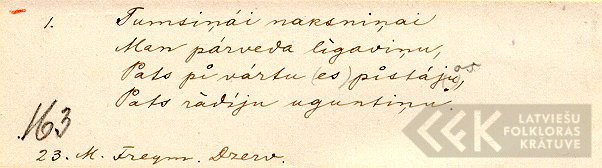 1. Tumsiņái naksniņai
Man párveda līgaviņu,
Pats pī vártu (es) pīstáju,
Pats rādīju uguntiņu.
163
23. M. Freym. Dzerv.
LATVIEŠU
FOLKLORAS
KRĀTUVE